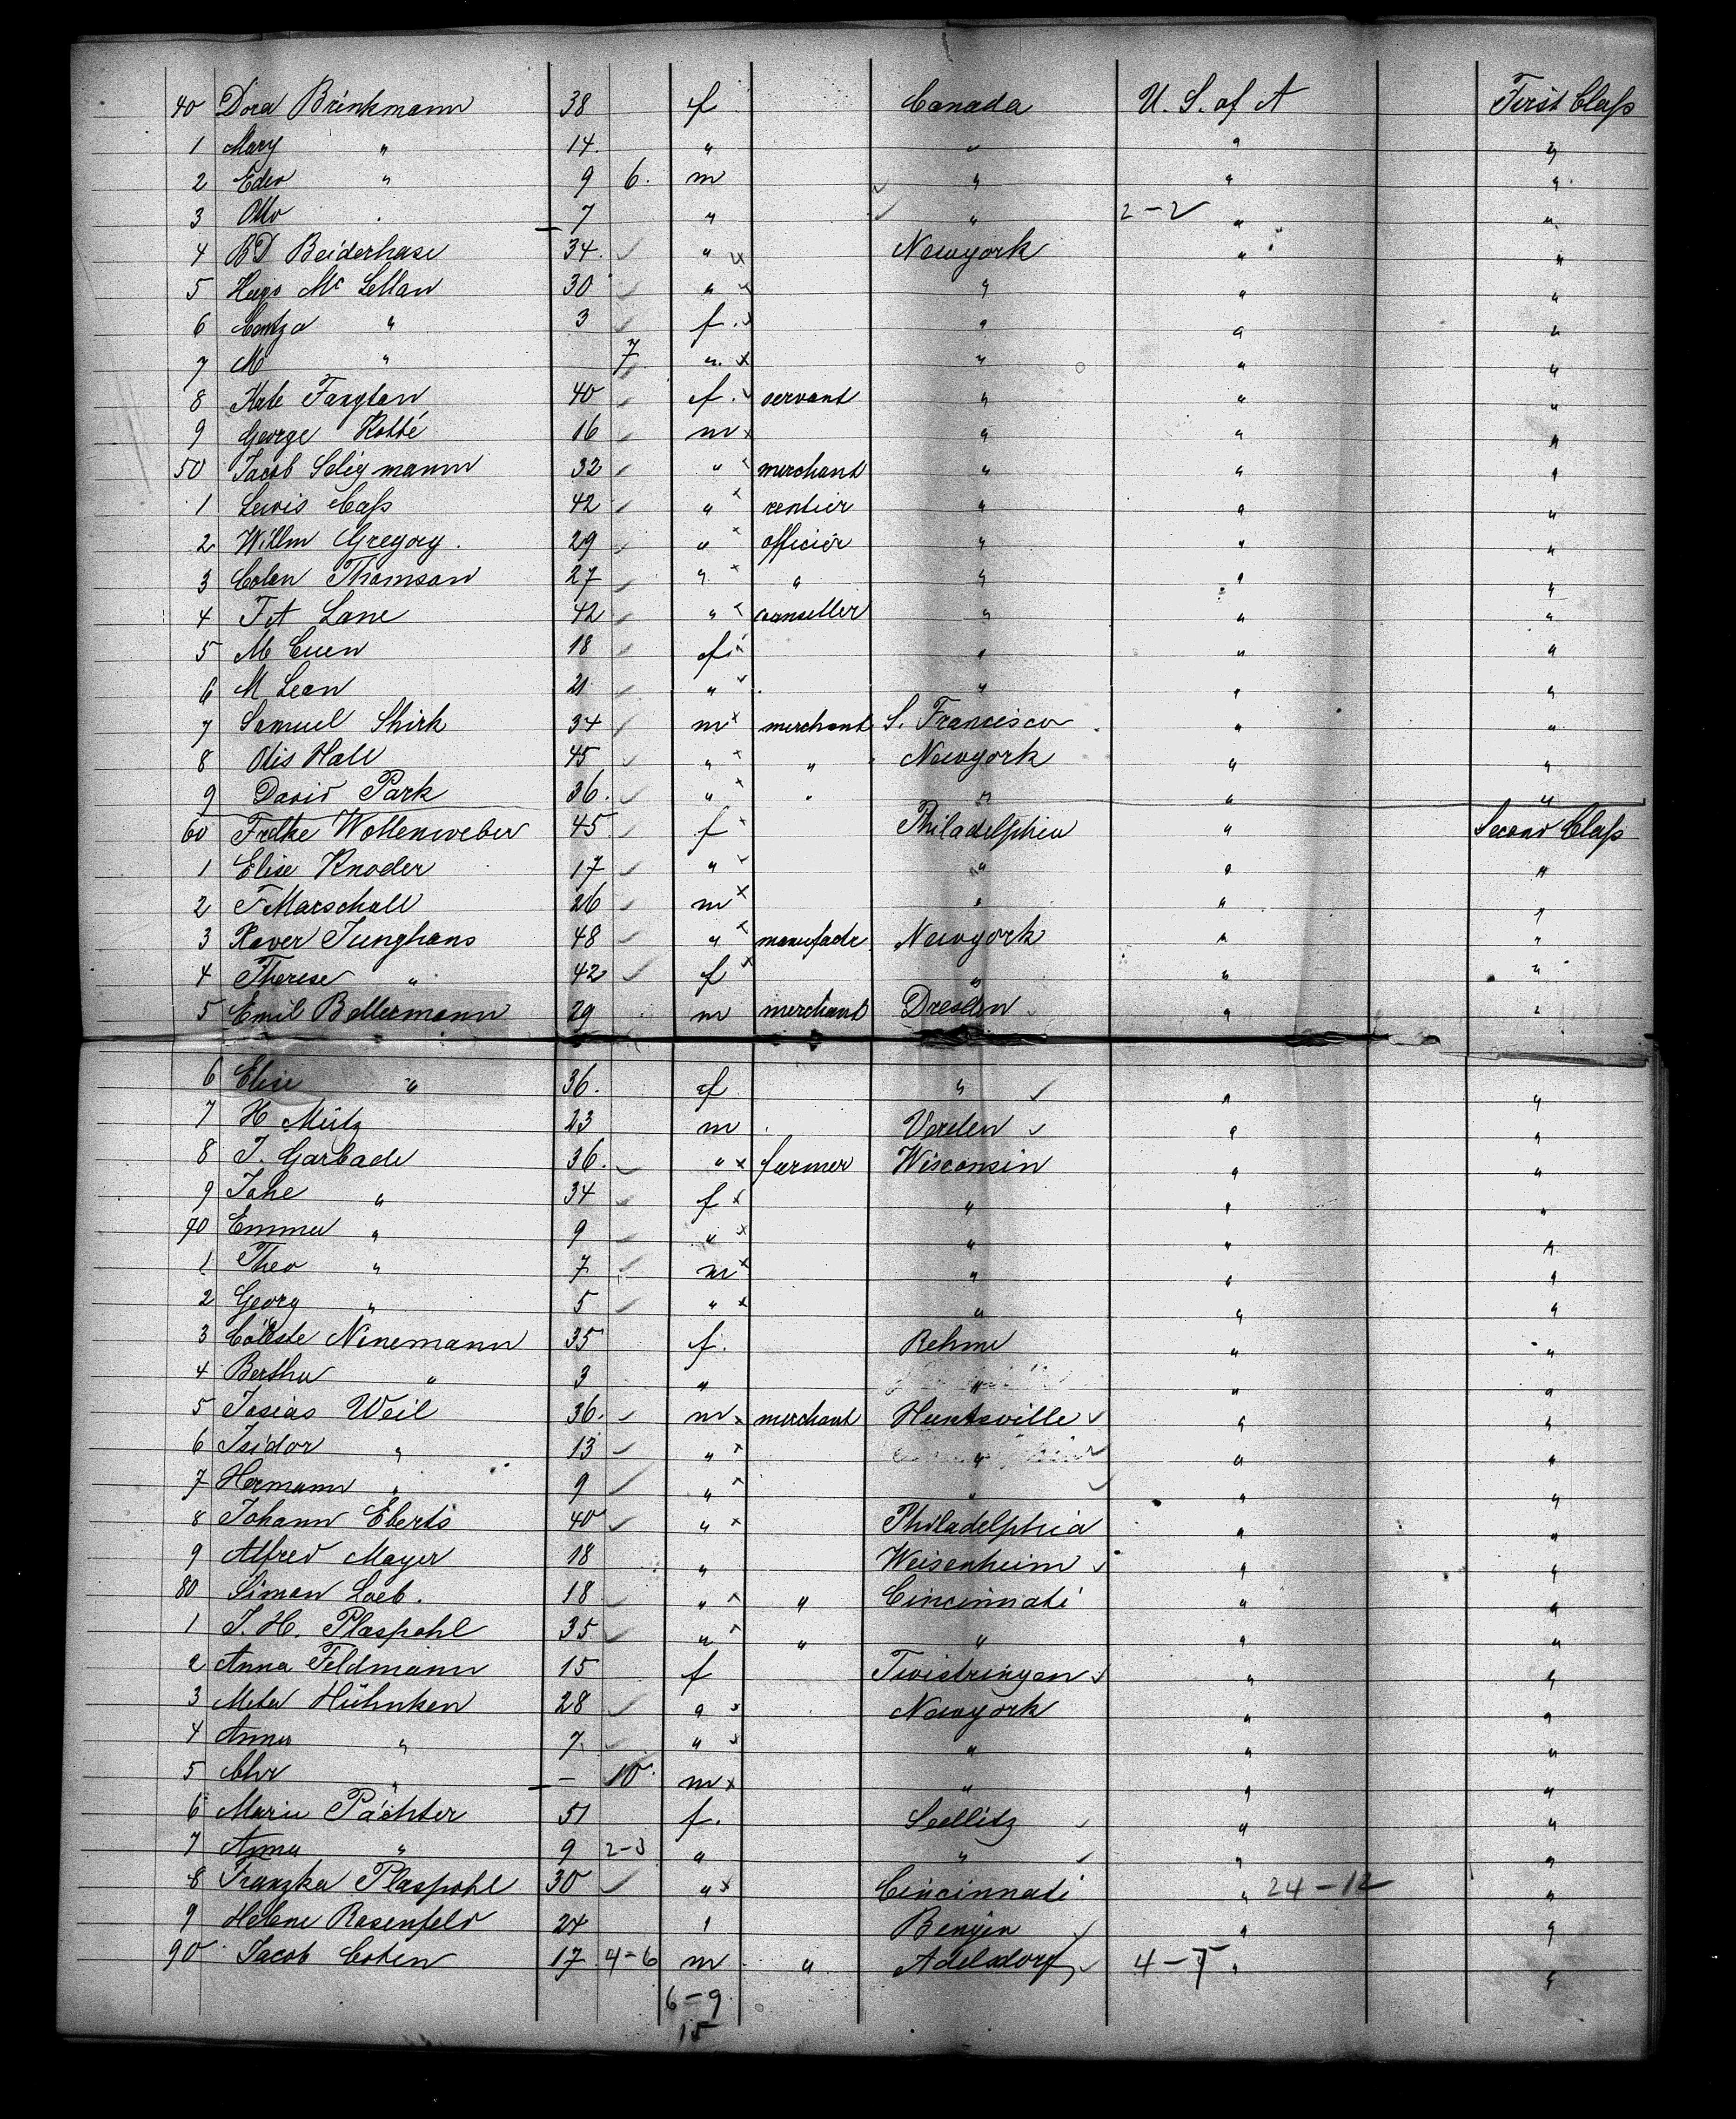 40 Dora Brinkmann 38 f Canada U. S. of A First Class
1 Mary " 14. " " " "
2 Edw " 9 6. m " " "
3 Otto " 7 " " 2-2 " "
4 BD Beiderhase 34. " Newyork " "
5 Hugo Mc Lellan 30 " " " "
6 " 3 f. " " "
7 M " 7 " " " "
8 Kate Fangton 40 f. servant " " "
9 George Kotté 16 m " " "
50 Jacob Seligmann 32 " merchant " " "
1 Lewis Cass 42 " rentier " " "
2 Willm Gregory. 29 " officier " " "
3 Colen Thomson 27 " " " " "
4 F A Lane 42 " counseller " " "
5 M Cuen 18 f " " "
6 M Leon 21 " " " "
7 Samuel Shirk 34 m merchant S. Francisco " "
8 Otis Hall 45 " " Newyork " "
9 David Park 36. " " " " "
60 Frdke Wollenweber 45 f Philadelphia " Second Class
1 Elise Knoder 17 " " " "
2 F Marschall 26 m " " "
3 Xaver Junghans 48 " manufactr Newyork " "
4 Therese " 42 f " " "
5 Emil Bellermann 29 m merchant Dresden " "
6 Elise " 36. f " " "
7 H Mütz 23 m Verden " "
8 J. Garbade 36. " farmer Wisconsin " "
9 Johe " 34 f " " "
70 Emma " 9 " " " "
1 Theo " 7 m " " "
2 Georg " 5 " " " "
3 Cöleste Ninemann 35 f. Rehme " "
4 Bertha " 3 " " " "
5 Josias Weil 36. m merchant Huntsville " "
6 Isidor " 13 " " " "
7 Hermann " 9 " " " "
8 Johann Eberts 40 " Philadelphia " "
9 Alfred Mayer 18 " Weisenheim " "
80 Simon Loeb. 18 " " Cincinnati " "
1 J. H. Plaspohl 35 " " " " "
2 Anna Feldmann 15 f Twistringen " "
3 Meta Hühnken 28 " Newyork " "
4 Anna " 7. " " " "
5 Chr " - 10. m " " "
6 Marie Pächter 51 f. Sellitz " "
7 Anna " 9 2-3 " " " "
8 Franzka Plaspohl 30 " Cincinnati " 24-12 "
9 Helene Rosenfeld 24 " " "
90 Jacob Cohen 17 4-6 m " Adelsdorf 4-7 " "
6-9
15